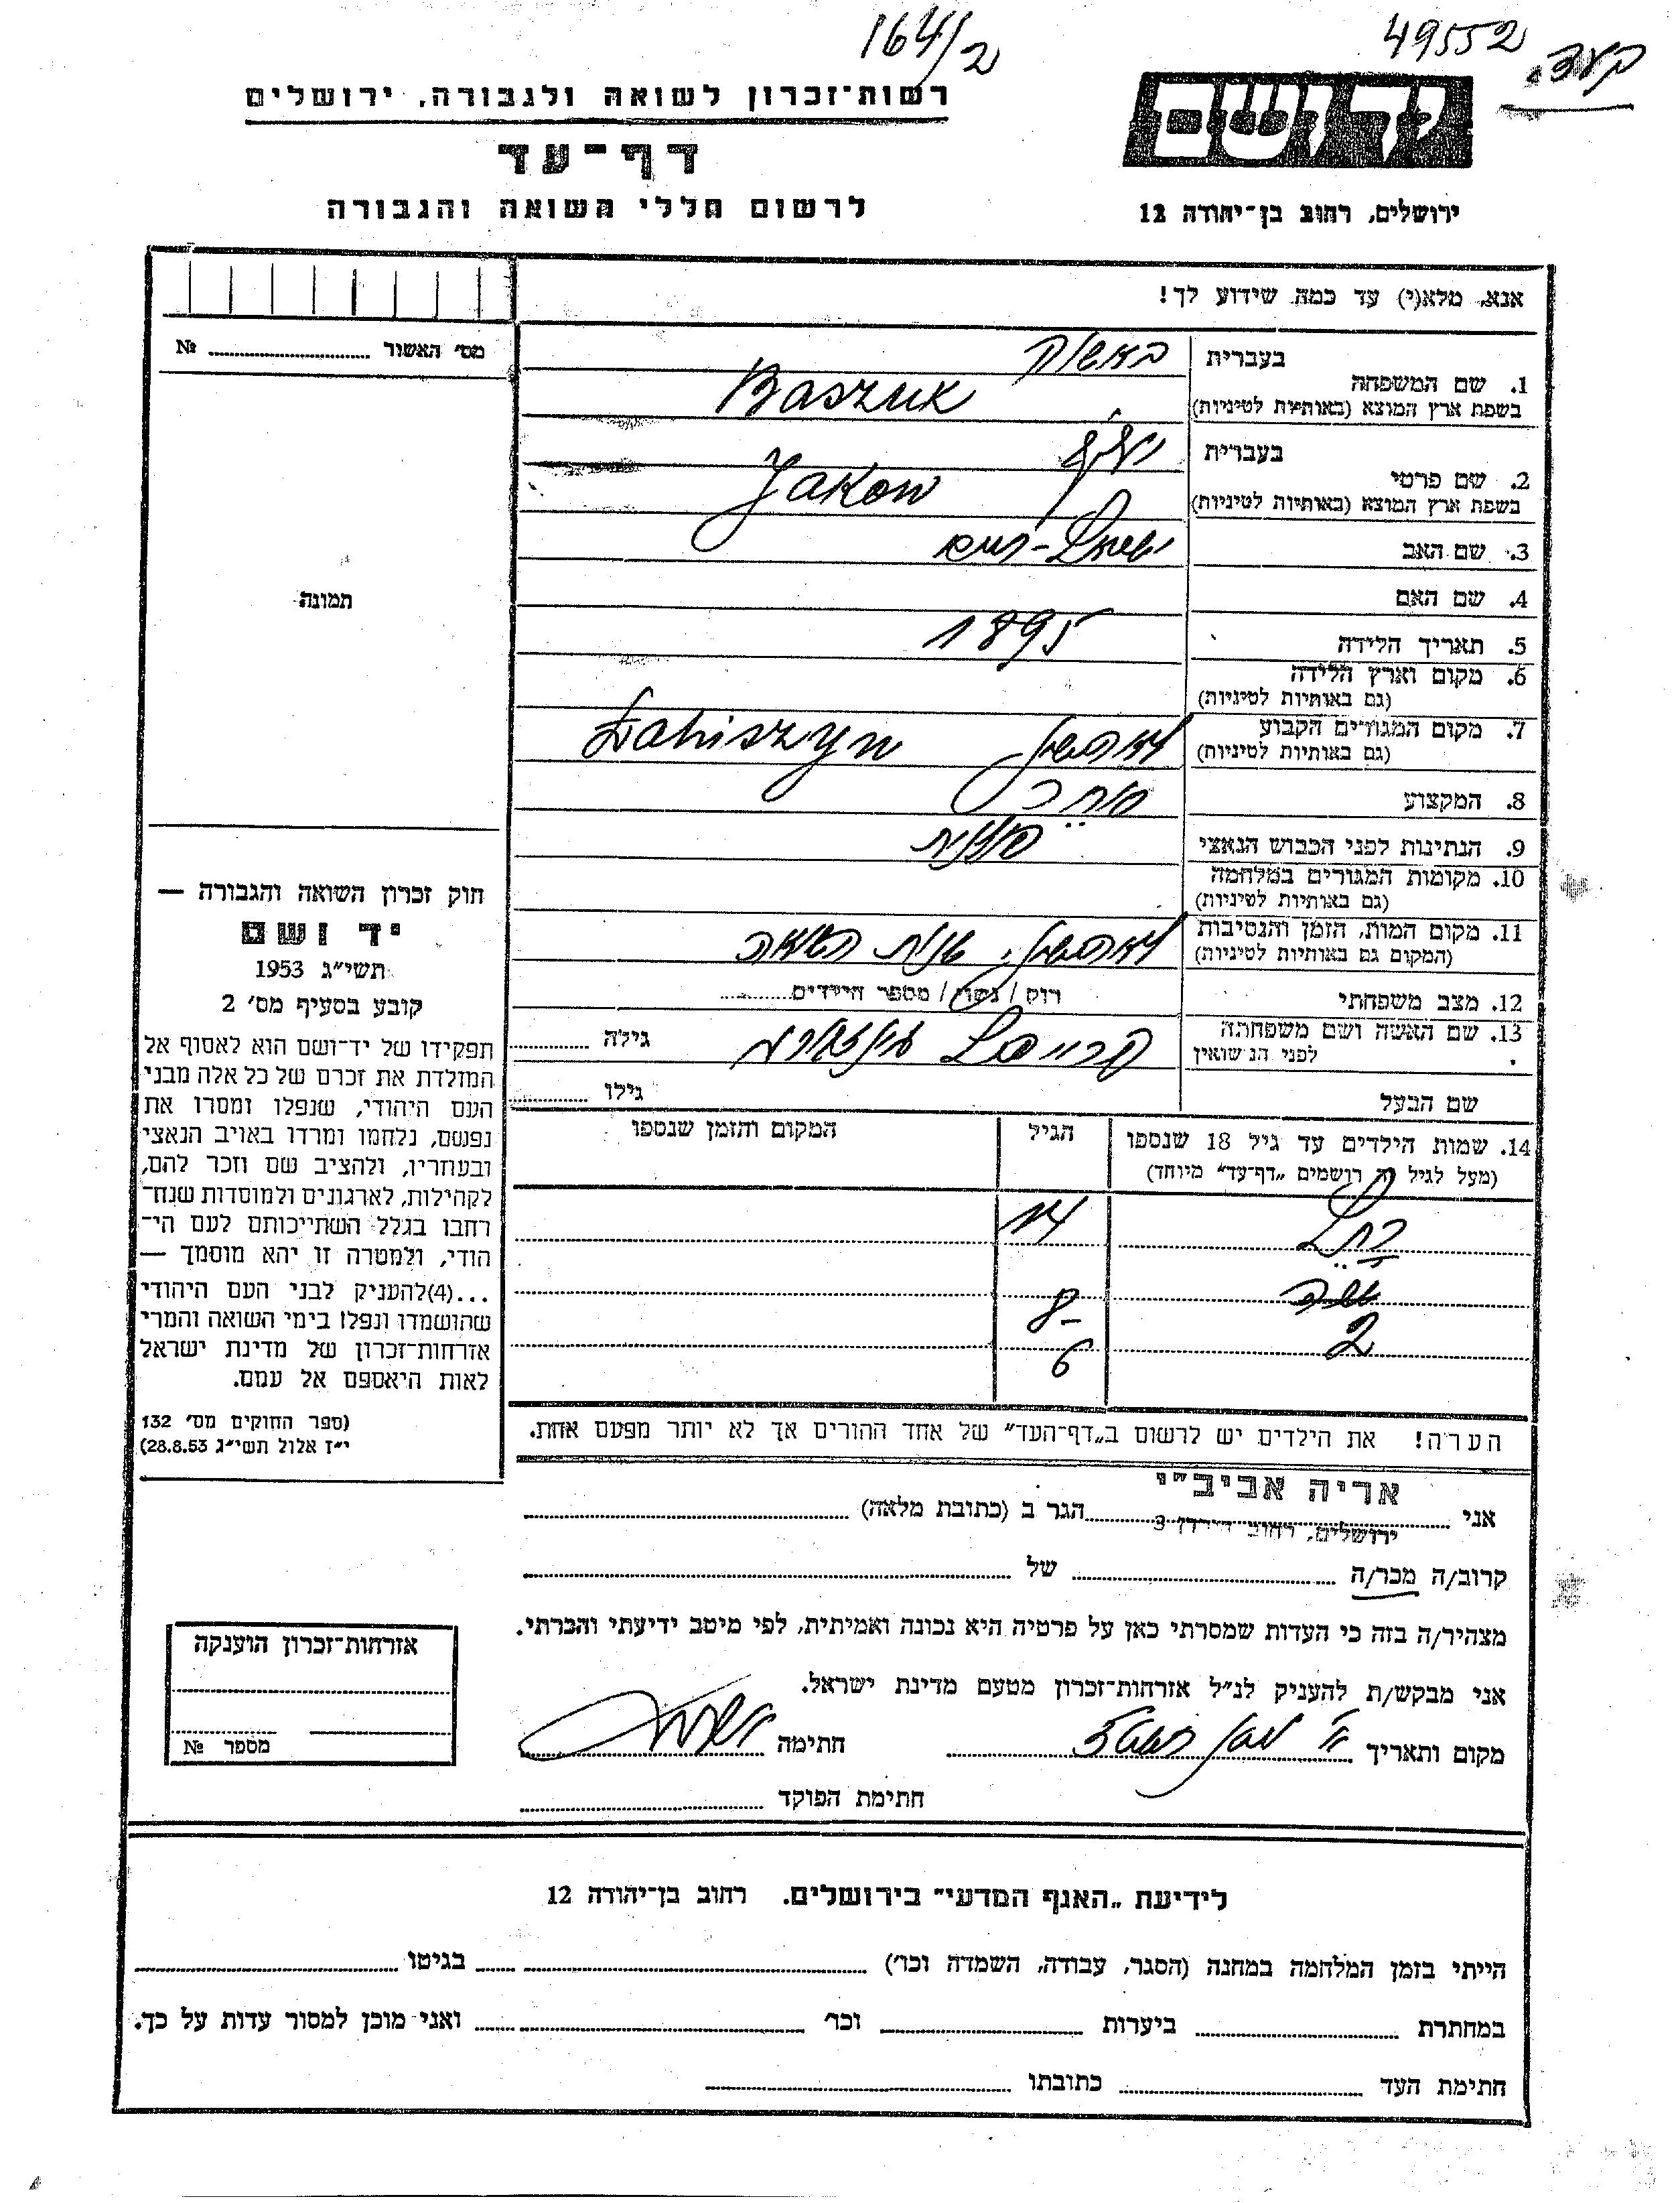 49552
164/2
יד ושם
רשות־זכרון לשואה ולגבורה, ירושלים
דף־עד
לרשום חללי השואה והגבורה
ירושלים, רחוב בן־יהודה 12
אנא, מלא(י) עד כמה שידוע לך!
מס׳ האשור ........ №
תמונה
בעברית
באשוק
1. שם המשפחה
בשפת ארץ המוצא (באותיות לטיניות)
Baszuk
בעברית
יעקב
2. שם פרטי
בשפת ארץ המוצא (באותיות לטיניות)
Jakow
3. שם האב
ישראל-
4. שם האם
5. תאריך הלידה
1895
6. מקום וארץ הלידה
(גם באותיות לטיניות)
7. מקום המגורים הקבוע
(גם באותיות לטיניות)
לאהישין Łahiszyn
8. המקצוע
סוחר
9. הנתינות לפני הכבוש הנאצי
פולנית
10. מקומות המגורים במלחמה
(גם באותיות לטיניות)
11. מקום המות, הזמן והנסיבות
(המקום גם באותיות לטיניות)
לאהישין, שנות השואה
12. מצב משפחתי
רוק / נשוי / מספר הילדים........
13. שם האשה ושם משפחתה
לפני הנשואין
פריידל גילה ........
שם הבעל
גילו ........
14. שמות הילדים עד גיל 18 שנספו
(מעל לגיל רושמים „דף־עד" מיוחד)
הגיל
המקום והזמן שנספו
רחל 14
8
2 6
הערה! את הילדים יש לרשום ב„דף־העד" של אחד ההורים אך לא יותר מפעם אחת.
חוק זכרון השואה והגבורה —
יד ושם
תשי״ג 1953
קובע בסעיף מס׳ 2
תפקידו של יד־ושם הוא לאסוף אל
המולדת את זכרם של כל אלה מבני
העם היהודי, שנפלו ומסרו את
נפשם, נלחמו ומרדו באויב הנאצי
ובעוזריו, ולהציב שם וזכר להם,
לקהילות, לארגונים ולמוסדות שנח־
רחבו בגלל השתייכותם לעם הי־
הודי, ולמטרה זו יהא מוסמך —
...(4)להעניק לבני העם היהודי
שהושמדו ונפלו בימי השואה והמרי
אזרחות־זכרון של מדינת ישראל
לאות היאספם אל עמם.
(ספר החוקים מס׳ 132
י״ז אלול תשי״ג 28.8.53)
אריה אביב״י
אני ........ הגר ב (כתובת מלאה) ........
ירושלים, רחוב הירדן 3
קרוב/ה מכר/ה ........ של ........
מצהיר/ה בזה כי העדות שמסרתי כאן על פרטיה היא נכונה ואמיתית, לפי מיטב ידיעתי והכרתי.
אני מבקש/ת להעניק לנ״ל אזרחות־זכרון מטעם מדינת ישראל.
מקום ותאריך ........ חתימה ........
חתימת הפוקד ........
אזרחות־זכרון הוענקה
מספר №
לידיעת „האגף המדעי" בירושלים. רחוב בן־יהודה 12
הייתי בזמן המלחמה במחנה (הסגר, עבודה, השמדה וכו׳) ........ בגיטו ........
במחתרת ........ ביערות ........ וכו׳ ........ ואני מוכן למסור עדות על כך.
חתימת העד ........ כתובתו ........